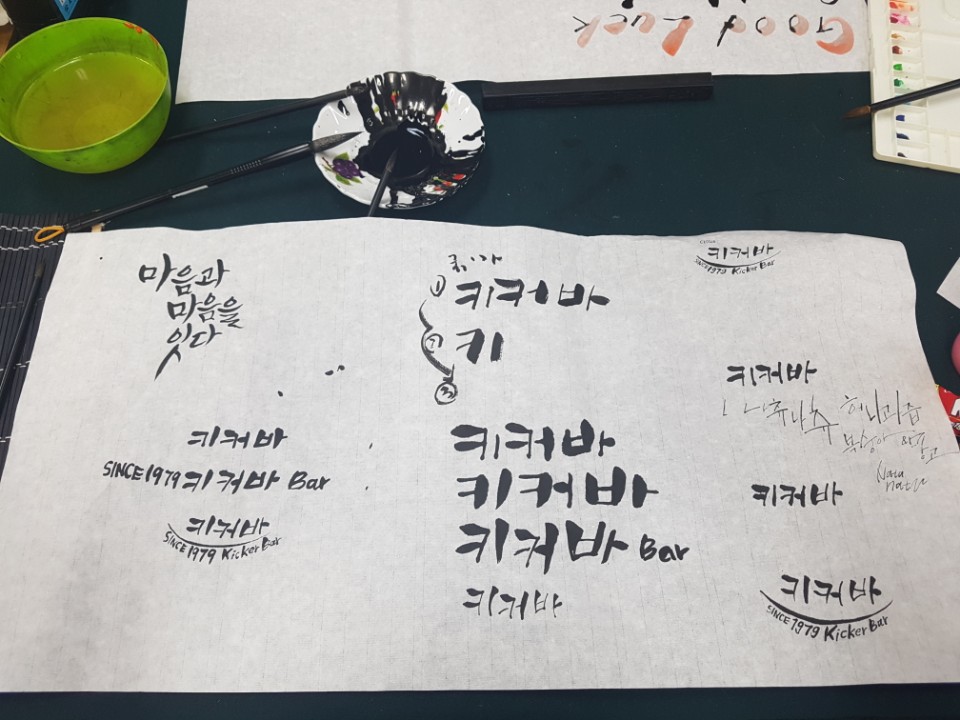 Good Luck
마음과
마음을
잇다
키커바
SINCE 1979 키커바 Bar
키커바
SINCE 1979 Kicker Bar
키커바
키
키커바
키커바
키커바 Bar
키커바
키커바
SINCE 1979 Kicker Bar
키커바
키커바
키커바
SINCE 1979 Kicker Bar